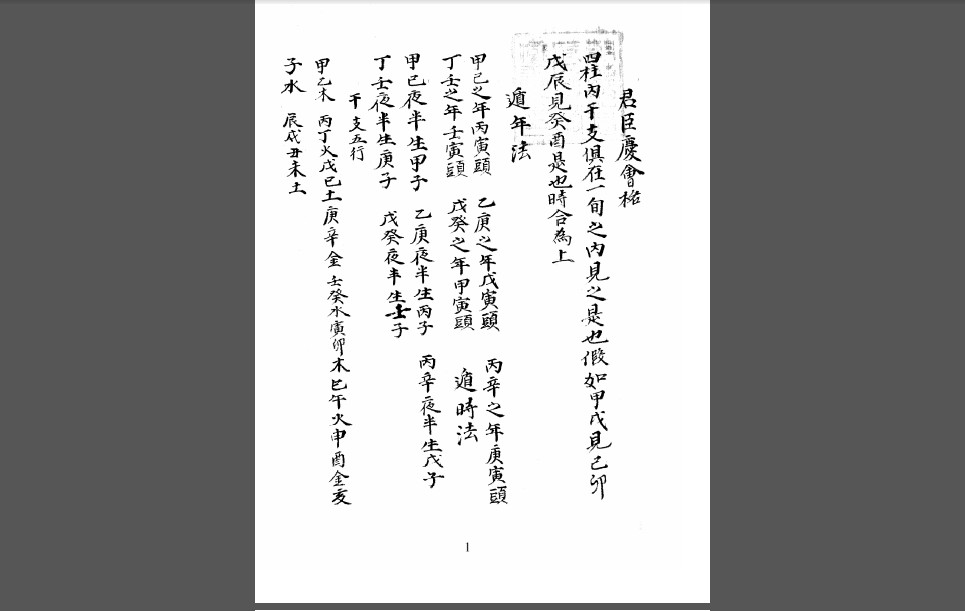 君臣慶會格
四柱內干支俱在一旬之內見之是也假如甲戌見己卯
戊辰見癸酉是也時合為上
遁年法
甲己之年丙寅頭 乙庚之年戊寅頭 丙辛之年庚寅頭
丁壬之年壬寅頭 戊癸之年甲寅頭 遁時法
甲己夜半生甲子 乙庚夜半生丙子 丙辛夜半生戊子
丁壬夜半生庚子 戊癸夜半生壬子
干支五行
甲乙木 丙丁火戊己土庚辛金 壬癸水寅卯木巳午火申酉金亥
子水 辰戌丑未土
1